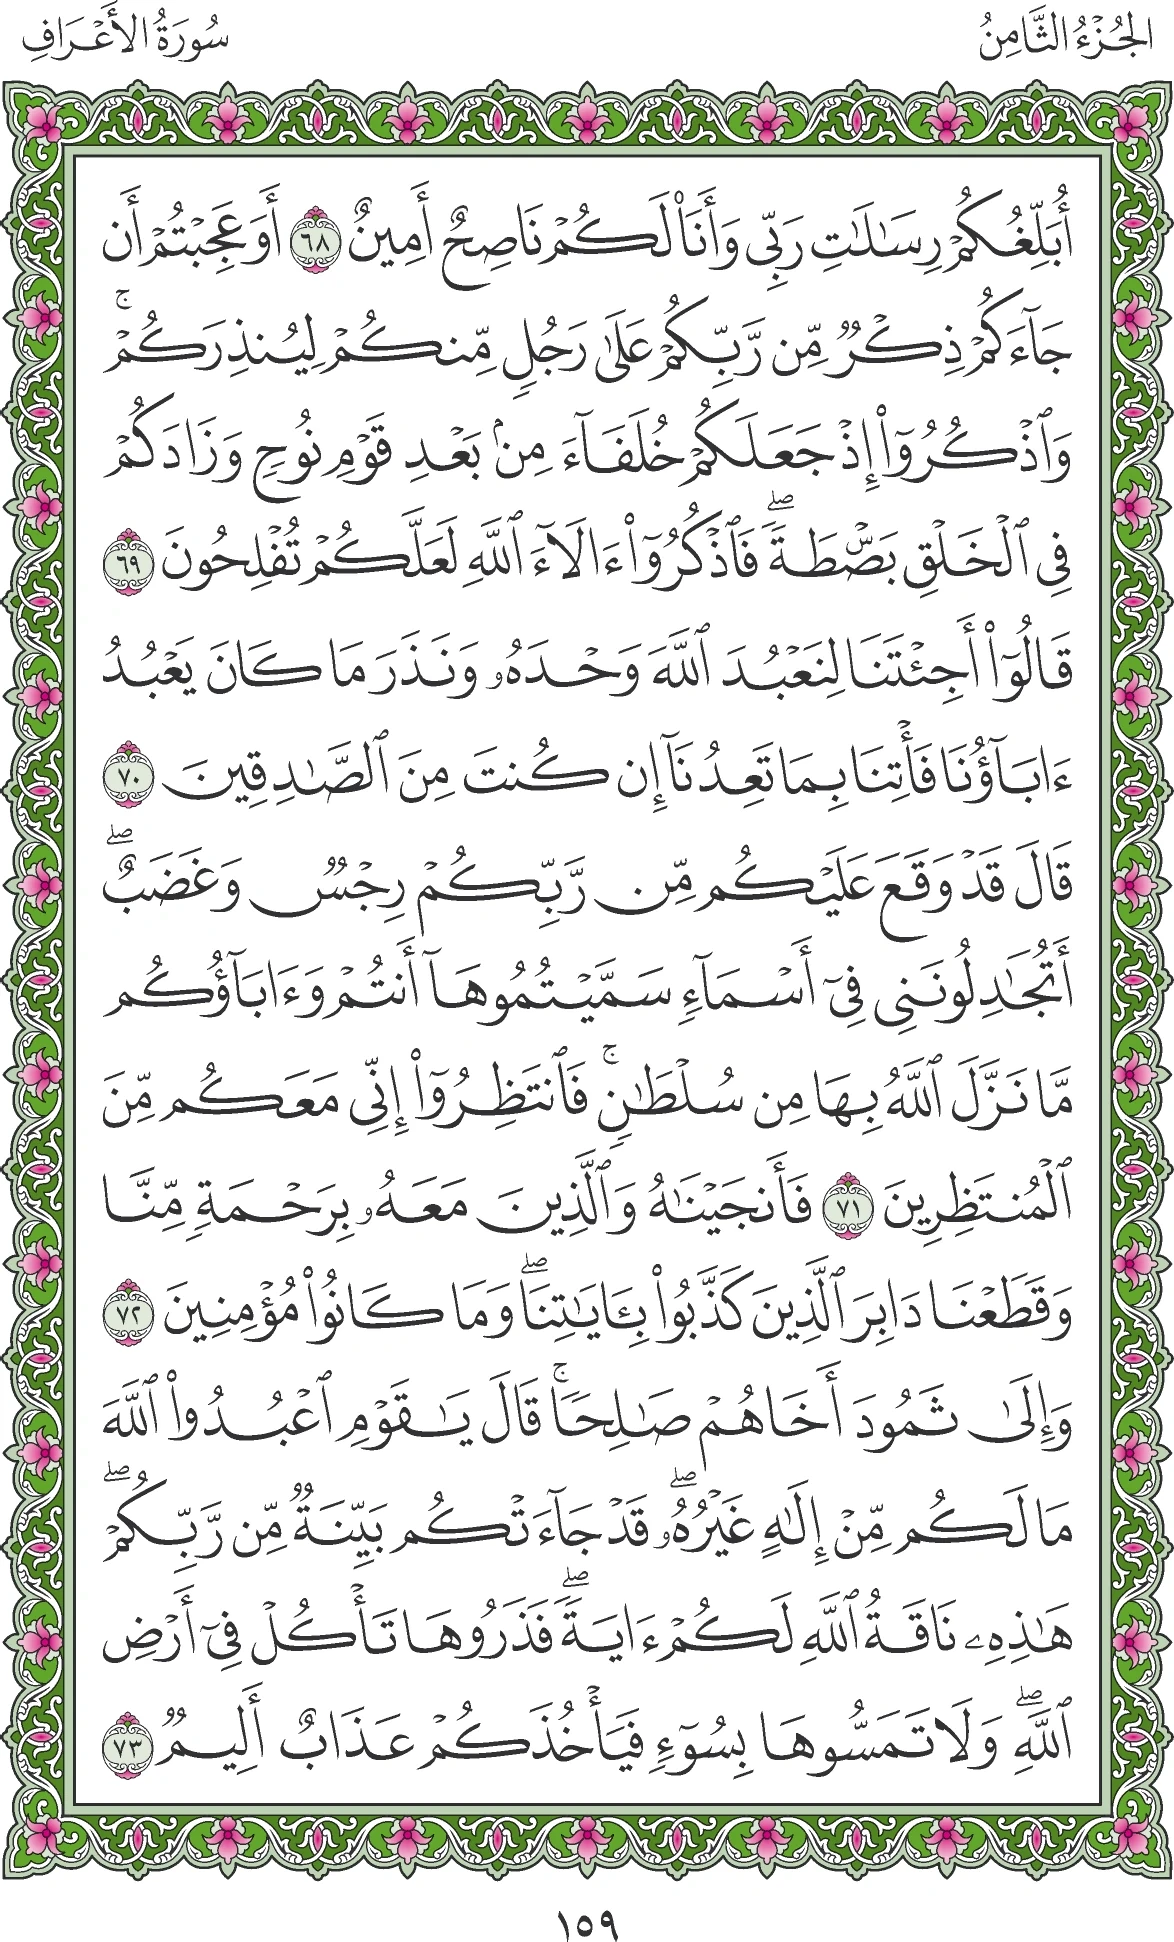 الجُزْءُ الثَّامِنُ
سُورَةُ الأَعْرَافِ
أُبَلِّغُكُمْ رِسَٰلَٰتِ رَبِّى وَأَنَا۠ لَكُمْ نَاصِحٌ أَمِينٌ ٦٨ أَوَعَجِبْتُمْ أَن
جَآءَكُمْ ذِكْرٌ مِّن رَّبِّكُمْ عَلَىٰ رَجُلٍ مِّنكُمْ لِيُنذِرَكُمْ ۚ
وَٱذْكُرُوٓا۟ إِذْ جَعَلَكُمْ خُلَفَآءَ مِنۢ بَعْدِ قَوْمِ نُوحٍ وَزَادَكُمْ
فِى ٱلْخَلْقِ بَصْۜطَةً ۖ فَٱذْكُرُوٓا۟ ءَالَآءَ ٱللَّهِ لَعَلَّكُمْ تُفْلِحُونَ ٦٩
قَالُوٓا۟ أَجِئْتَنَا لِنَعْبُدَ ٱللَّهَ وَحْدَهُۥ وَنَذَرَ مَا كَانَ يَعْبُدُ
ءَابَآؤُنَا فَأْتِنَا بِمَا تَعِدُنَآ إِن كُنتَ مِنَ ٱلصَّٰدِقِينَ ٧٠
قَالَ قَدْ وَقَعَ عَلَيْكُم مِّن رَّبِّكُمْ رِجْسٌ وَغَضَبٌ ۖ
أَتُجَٰدِلُونَنِى فِىٓ أَسْمَآءٍ سَمَّيْتُمُوهَآ أَنتُمْ وَءَابَآؤُكُم
مَّا نَزَّلَ ٱللَّهُ بِهَا مِن سُلْطَٰنٍ ۚ فَٱنتَظِرُوٓا۟ إِنِّى مَعَكُم مِّنَ
ٱلْمُنتَظِرِينَ ٧١ فَأَنجَيْنَٰهُ وَٱلَّذِينَ مَعَهُۥ بِرَحْمَةٍ مِّنَّا
وَقَطَعْنَا دَابِرَ ٱلَّذِينَ كَذَّبُوا۟ بِـَٔايَٰتِنَا ۖ وَمَا كَانُوا۟ مُؤْمِنِينَ ٧٢
وَإِلَىٰ ثَمُودَ أَخَاهُمْ صَٰلِحًا ۚ قَالَ يَٰقَوْمِ ٱعْبُدُوا۟ ٱللَّهَ
مَا لَكُم مِّنْ إِلَٰهٍ غَيْرُهُۥ ۖ قَدْ جَآءَتْكُم بَيِّنَةٌ مِّن رَّبِّكُمْ ۖ
هَٰذِهِۦ نَاقَةُ ٱللَّهِ لَكُمْ ءَايَةً ۖ فَذَرُوهَا تَأْكُلْ فِىٓ أَرْضِ
ٱللَّهِ ۖ وَلَا تَمَسُّوهَا بِسُوٓءٍ فَيَأْخُذَكُمْ عَذَابٌ أَلِيمٌ ٧٣
١٥٩